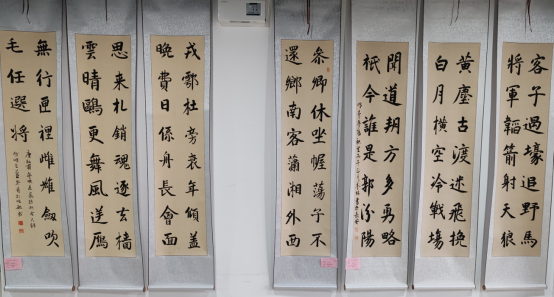 客子過壕追野馬
將軍韜箭射天狼
黃塵古渡迷飛挽
白月橫空冷戰塲
聞道朔方多勇略
祇今誰是郭汾陽
參卿休坐幄蕩子不
還鄉南客瀟湘外西
戎鄠杜旁衰年傾蓋
晚費日係舟長會面
思来札銷魂逐去檣
雲晴鷗更舞風逆鴈
無行匣裡雌雄劔吹
毛任選將